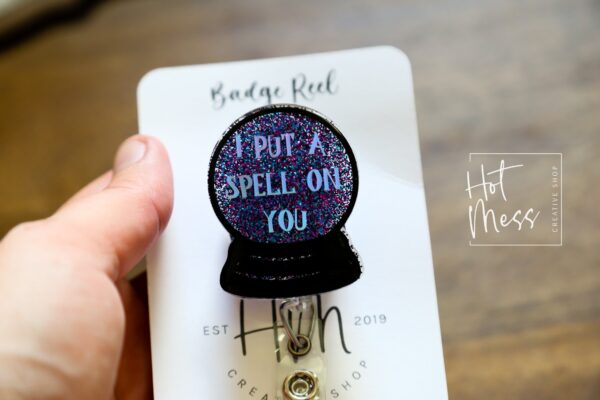 Badge Reel
I PUT A
SPELL ON
YOU
Hot
Mess
CREATIVE SHOP
EST 2019
CREA SHOP